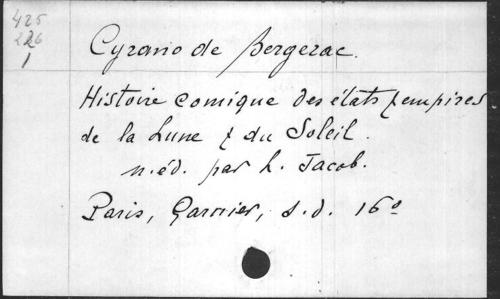 425
226
1
Cyrano de Bergerac.
Histoire comique des états & empires
de la Lune & du Soleil.
n. éd. par L. Jacob.
Paris, Garnier, s.d. 16°